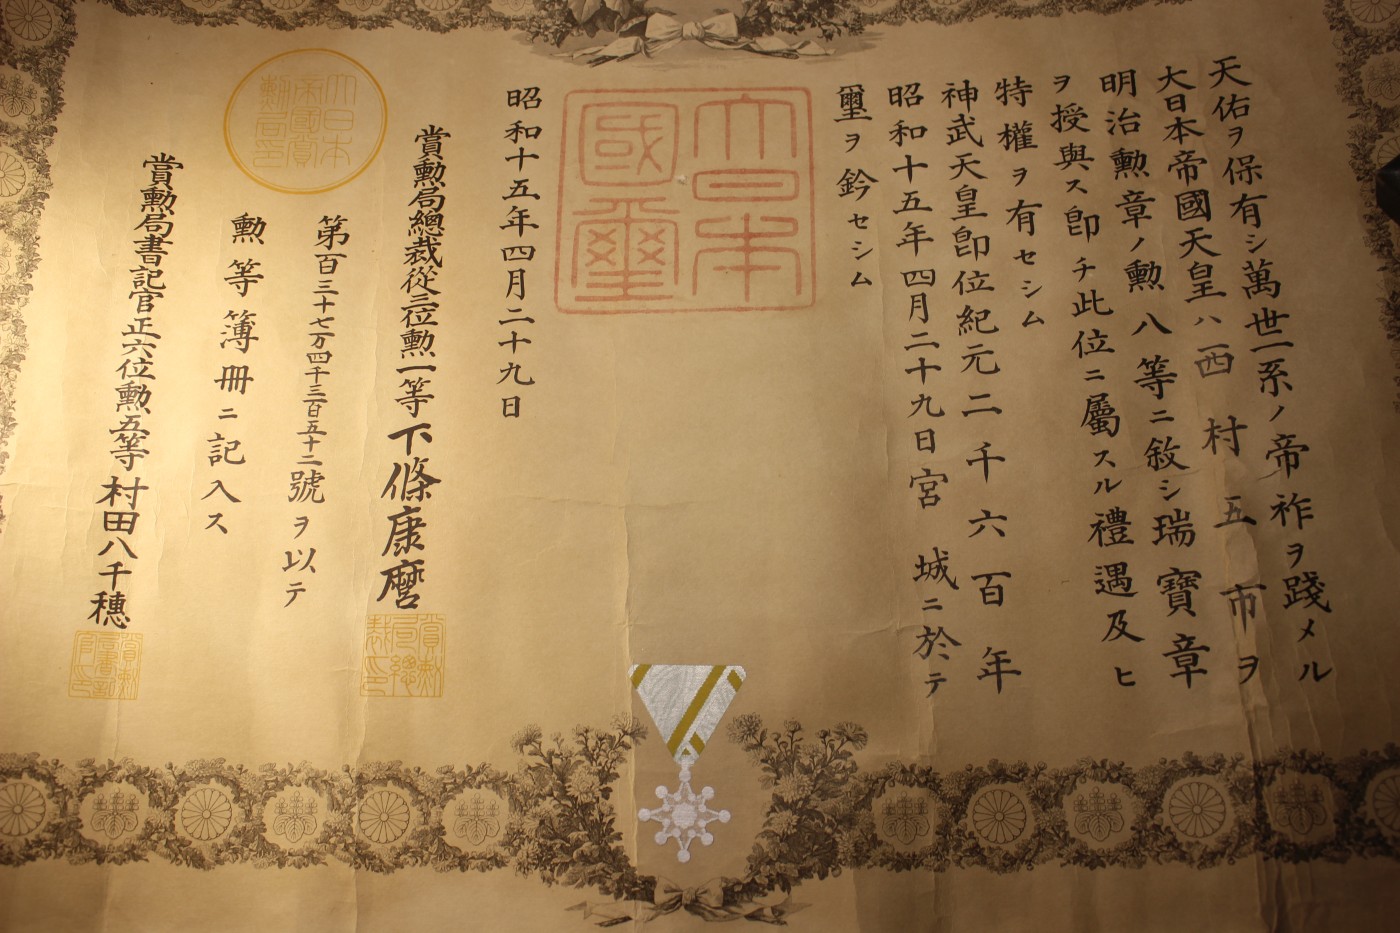 天佑ヲ保有シ萬世一系ノ帝祚ヲ踐メル
大日本帝國天皇ハ西村五市ヲ
明治勲章ノ勲八等ニ敍シ瑞寶章
ヲ授與ス卽チ此位ニ屬スル禮遇及ヒ
特權ヲ有セシム
神武天皇卽位紀元二千六百年
昭和十五年四月二十九日宮城ニ於テ
璽ヲ鈐セシム
大日本
國璽
昭和十五年四月二十九日
賞勲局總裁從三位勲一等下條康麿
賞勲局總裁印
第百三十七万四千三百五十二號ヲ以テ
勲等簿冊ニ記入ス
大日本
帝國賞
勲局印
賞勲局書記官正六位勲五等村田八千穗
賞勲局書記官印